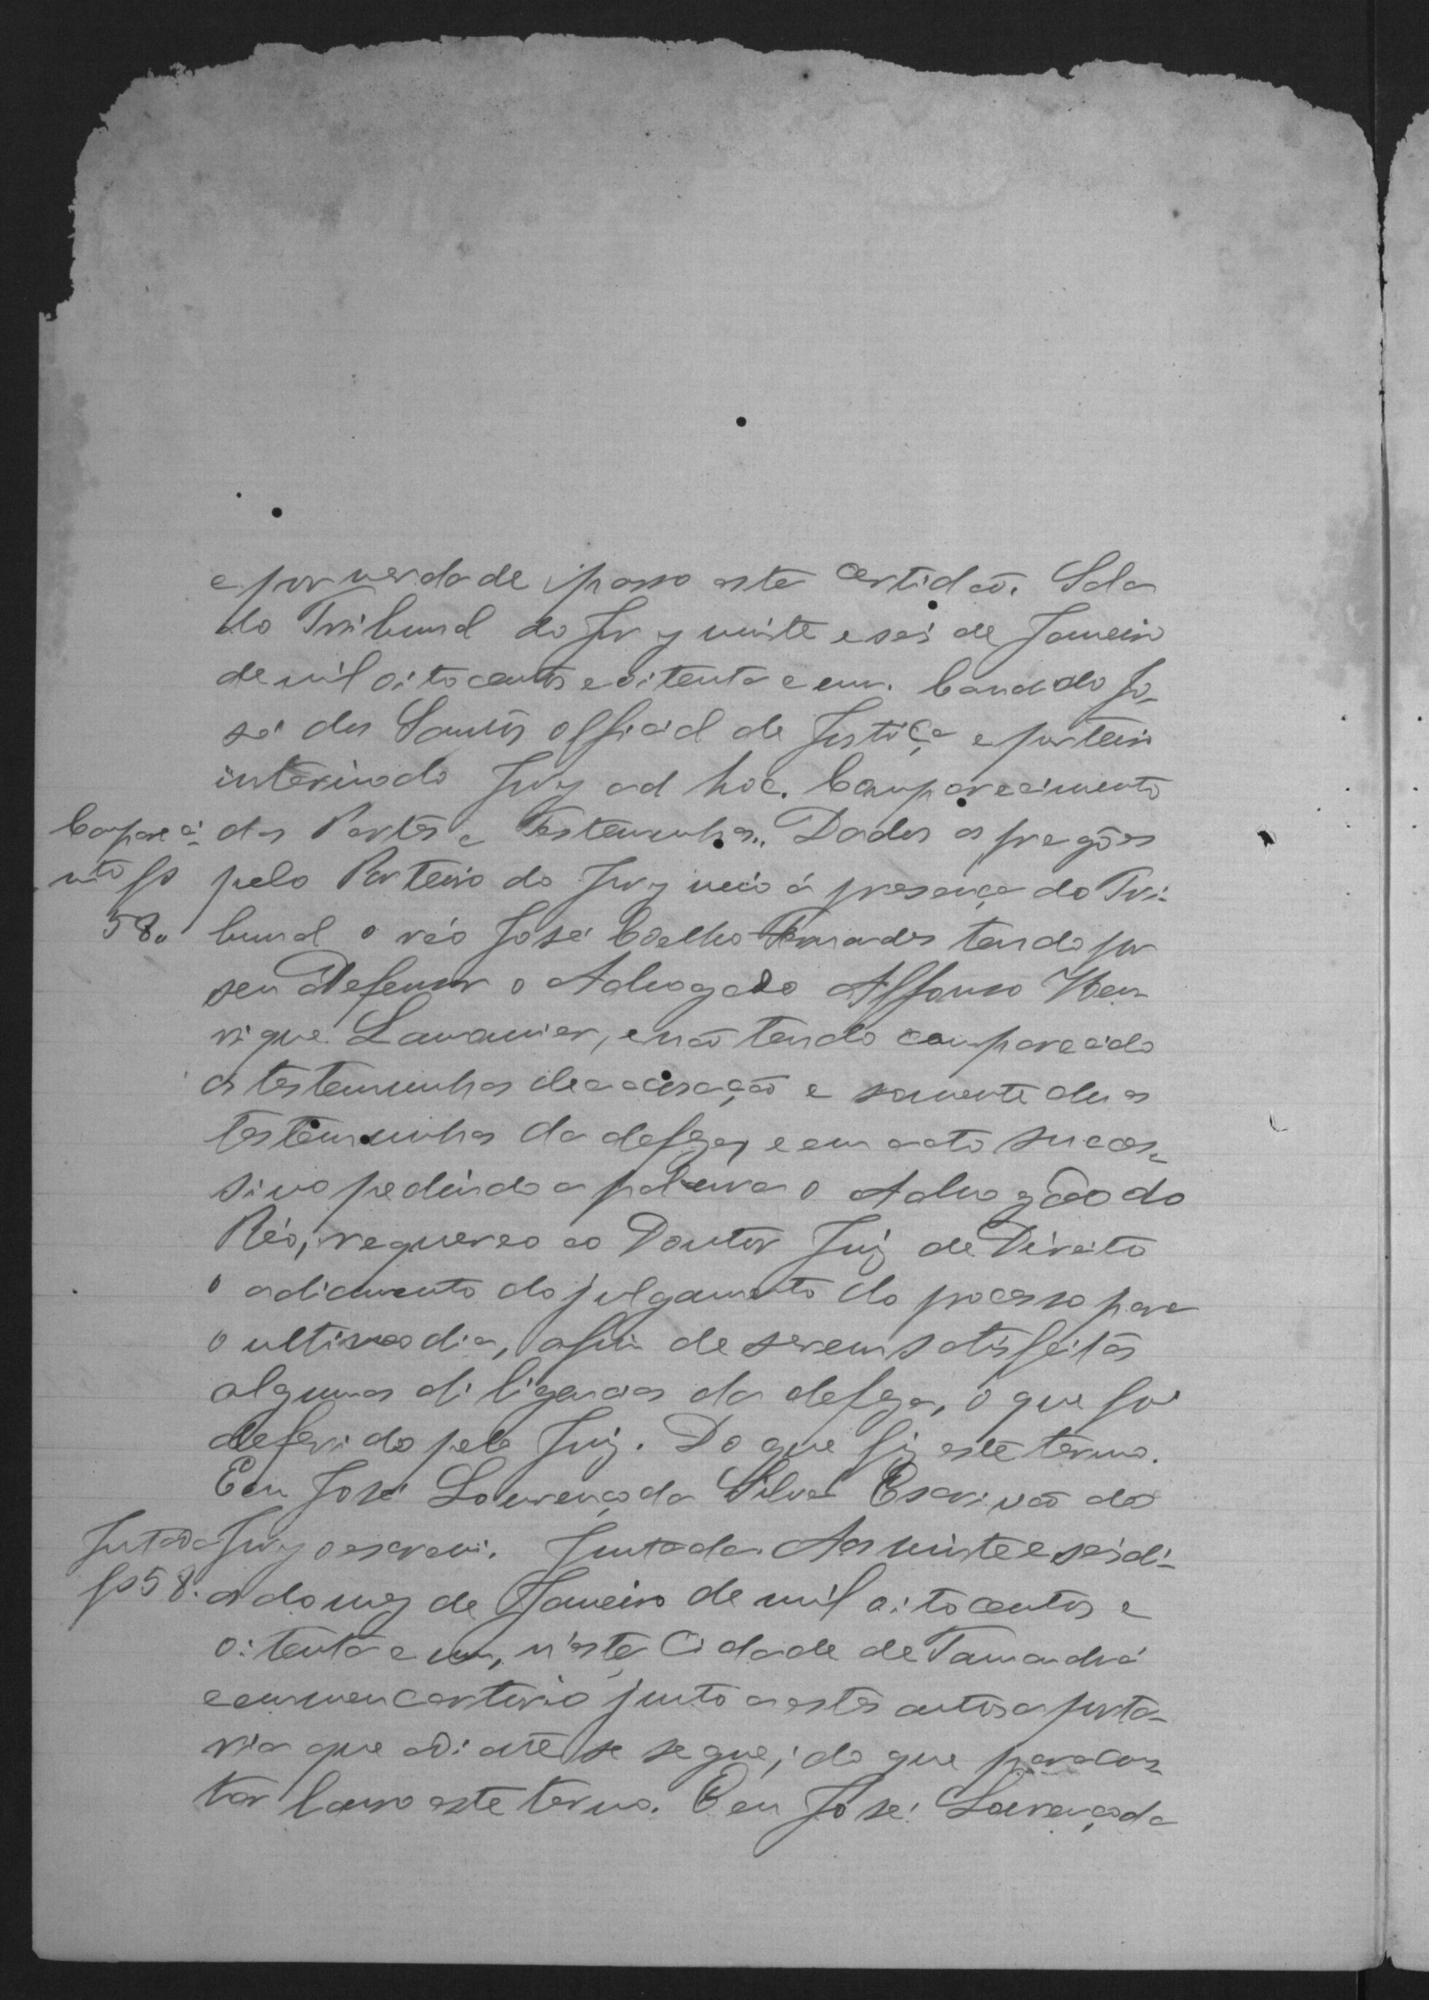 e por verdade passo esta certidaõ. Sala
do Tribunal do Jury vinte e seis de Janeiro
de mil oitocentos e oitenta e um. Candido Jo-
sé dos Santos official de Justiça e porteiro
interino do Jury ad hoc. Comparecimento
Compareci- das Partes e Testemunhas. Dados os pregões
mto fs pelo Porteiro do Jury veio á presença do Tri-
58. bunal o réo José Coelho Fernandes tendo por
seu Defensor o Advogado Affonso Hen-
rique Lamounier, e naõ tendo comparecido
as testemunhas de accusação e somente duas
testemunhas da defeza, e em acto succes-
sivo pedindo a palavra o Advogado do
Réo, requereo ao Doutor Juiz de Direito
o adiamento do julgamento do processo para
o ultimo dia, afim de serem satisfeitas
algumas diligencias da defeza, o que foi
deferido pelo Juiz. Do que fiz este termo.
Eu José Lourenço da Silva Escrivaõ do
Jutada Jury o escrevi. Juntada Aos vinte e seis di-
fs 58. as do mez de Janeiro de mil oitocentos e
oitenta e um, n'esta Cidade de Tamanduá
e em meu cartorio junto a estes autos a porta-
ria que adiante se segue; do que para cons-
tar lavro este termo. Eu José Lourenço da